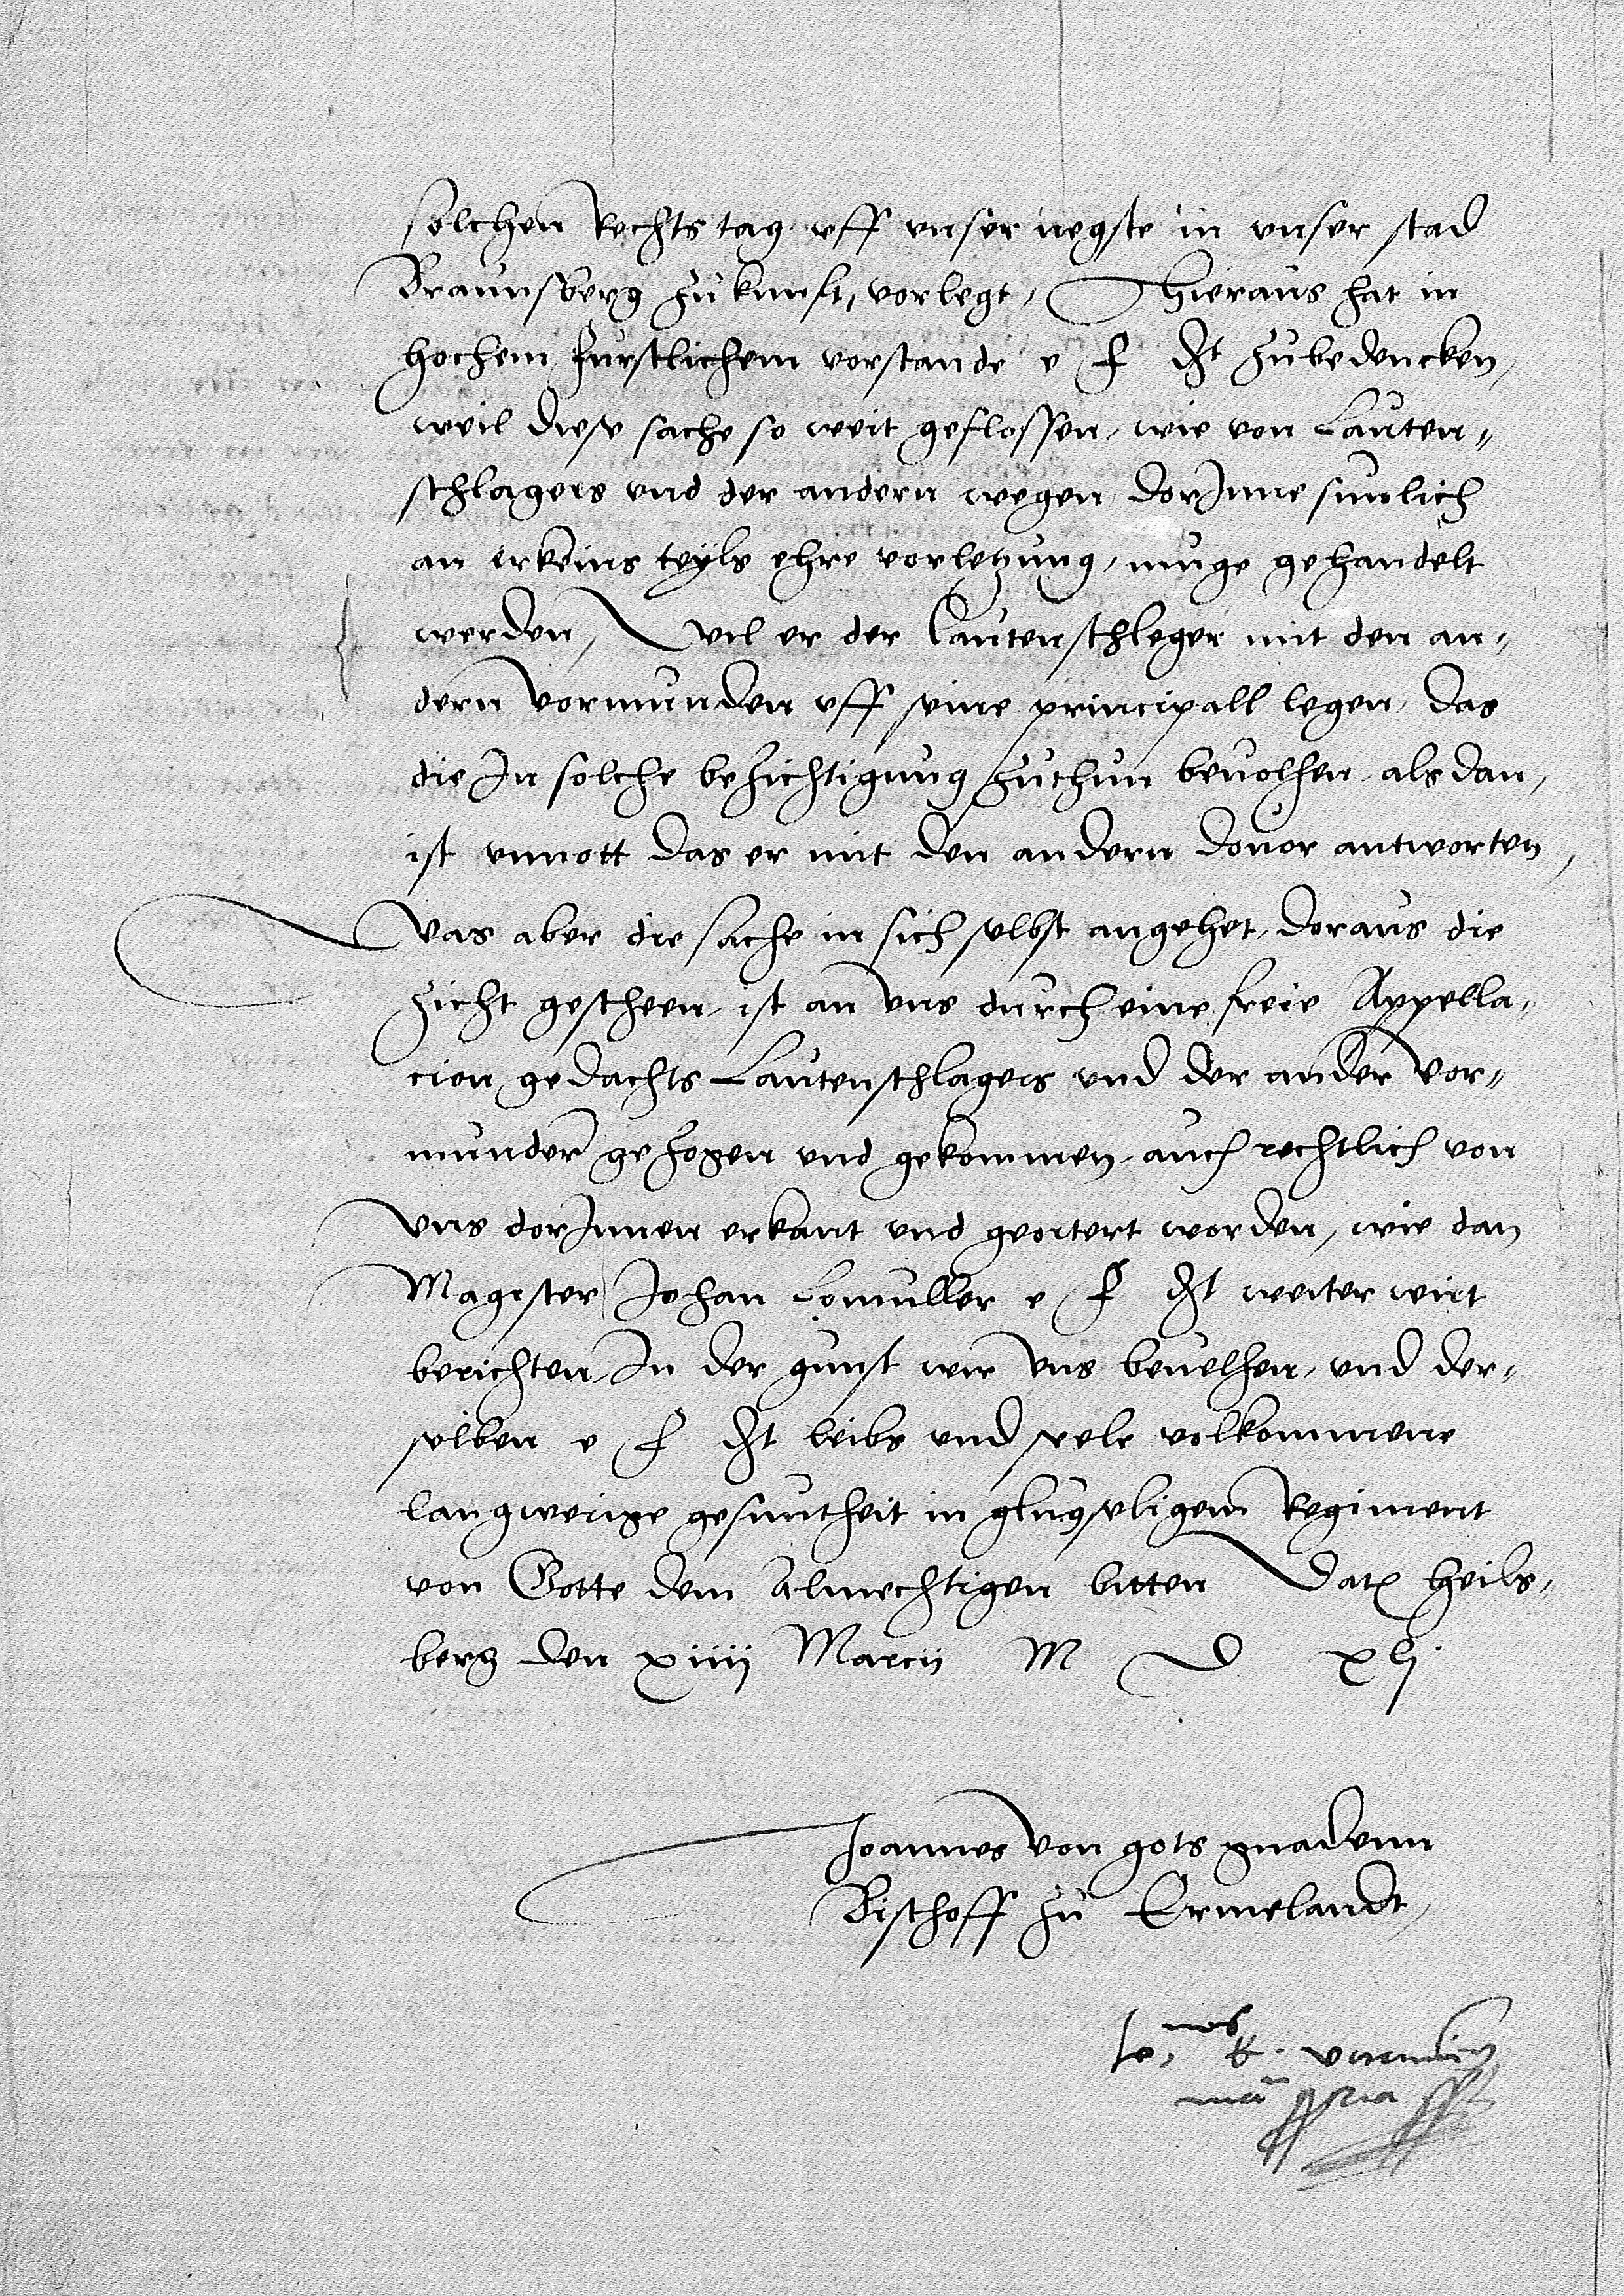 solchen Rechts tag uff unser negste in unser stad
Braunsberg zukunft, vorlegt, Hieraus hat in
hochem furstlichem vorstande e f Dt zubedencken,
weil diese sache so weit geflossen, wie von Lauten-
schlagers und der andern wegen, dorJnne sunlich
an erkeins teyls ehre vorletzung, muge gehandelt
werden, Wil er der Lautenschleger mit den an-
dern vormunden uff seine principall legen, das
die Jn solche bezichtigung zuthun bevolhen, alsdan,
ist unnott das er mit den andern dovor antworten,
Was aber die sache in sich selbst angehet, doraus die
zicht gescheen, ist an uns durch eine freie Appella-
cion gedachts Lautenschlagers und der ander vor-
munder gezogen und gekommen, auch rechtlich von
uns dorJnnen erkant und geortert worden, wie dan
Magister Johan Lomuller e f Dt weiter wirt
berichten, Jn der gunst wir uns bevelhen, und der-
selben e f Dt leibs und seele volkommene
langwerige gesuntheit in glugseligem Regiment
von Gotte dem Almechtigen bitten Datum Heils-
berg den xiiij Marcij M D xlj
Joannes von gots gnadenn
Bischoff zu Ermelandt,
Jo,nes E. varmien
manu ppria sst